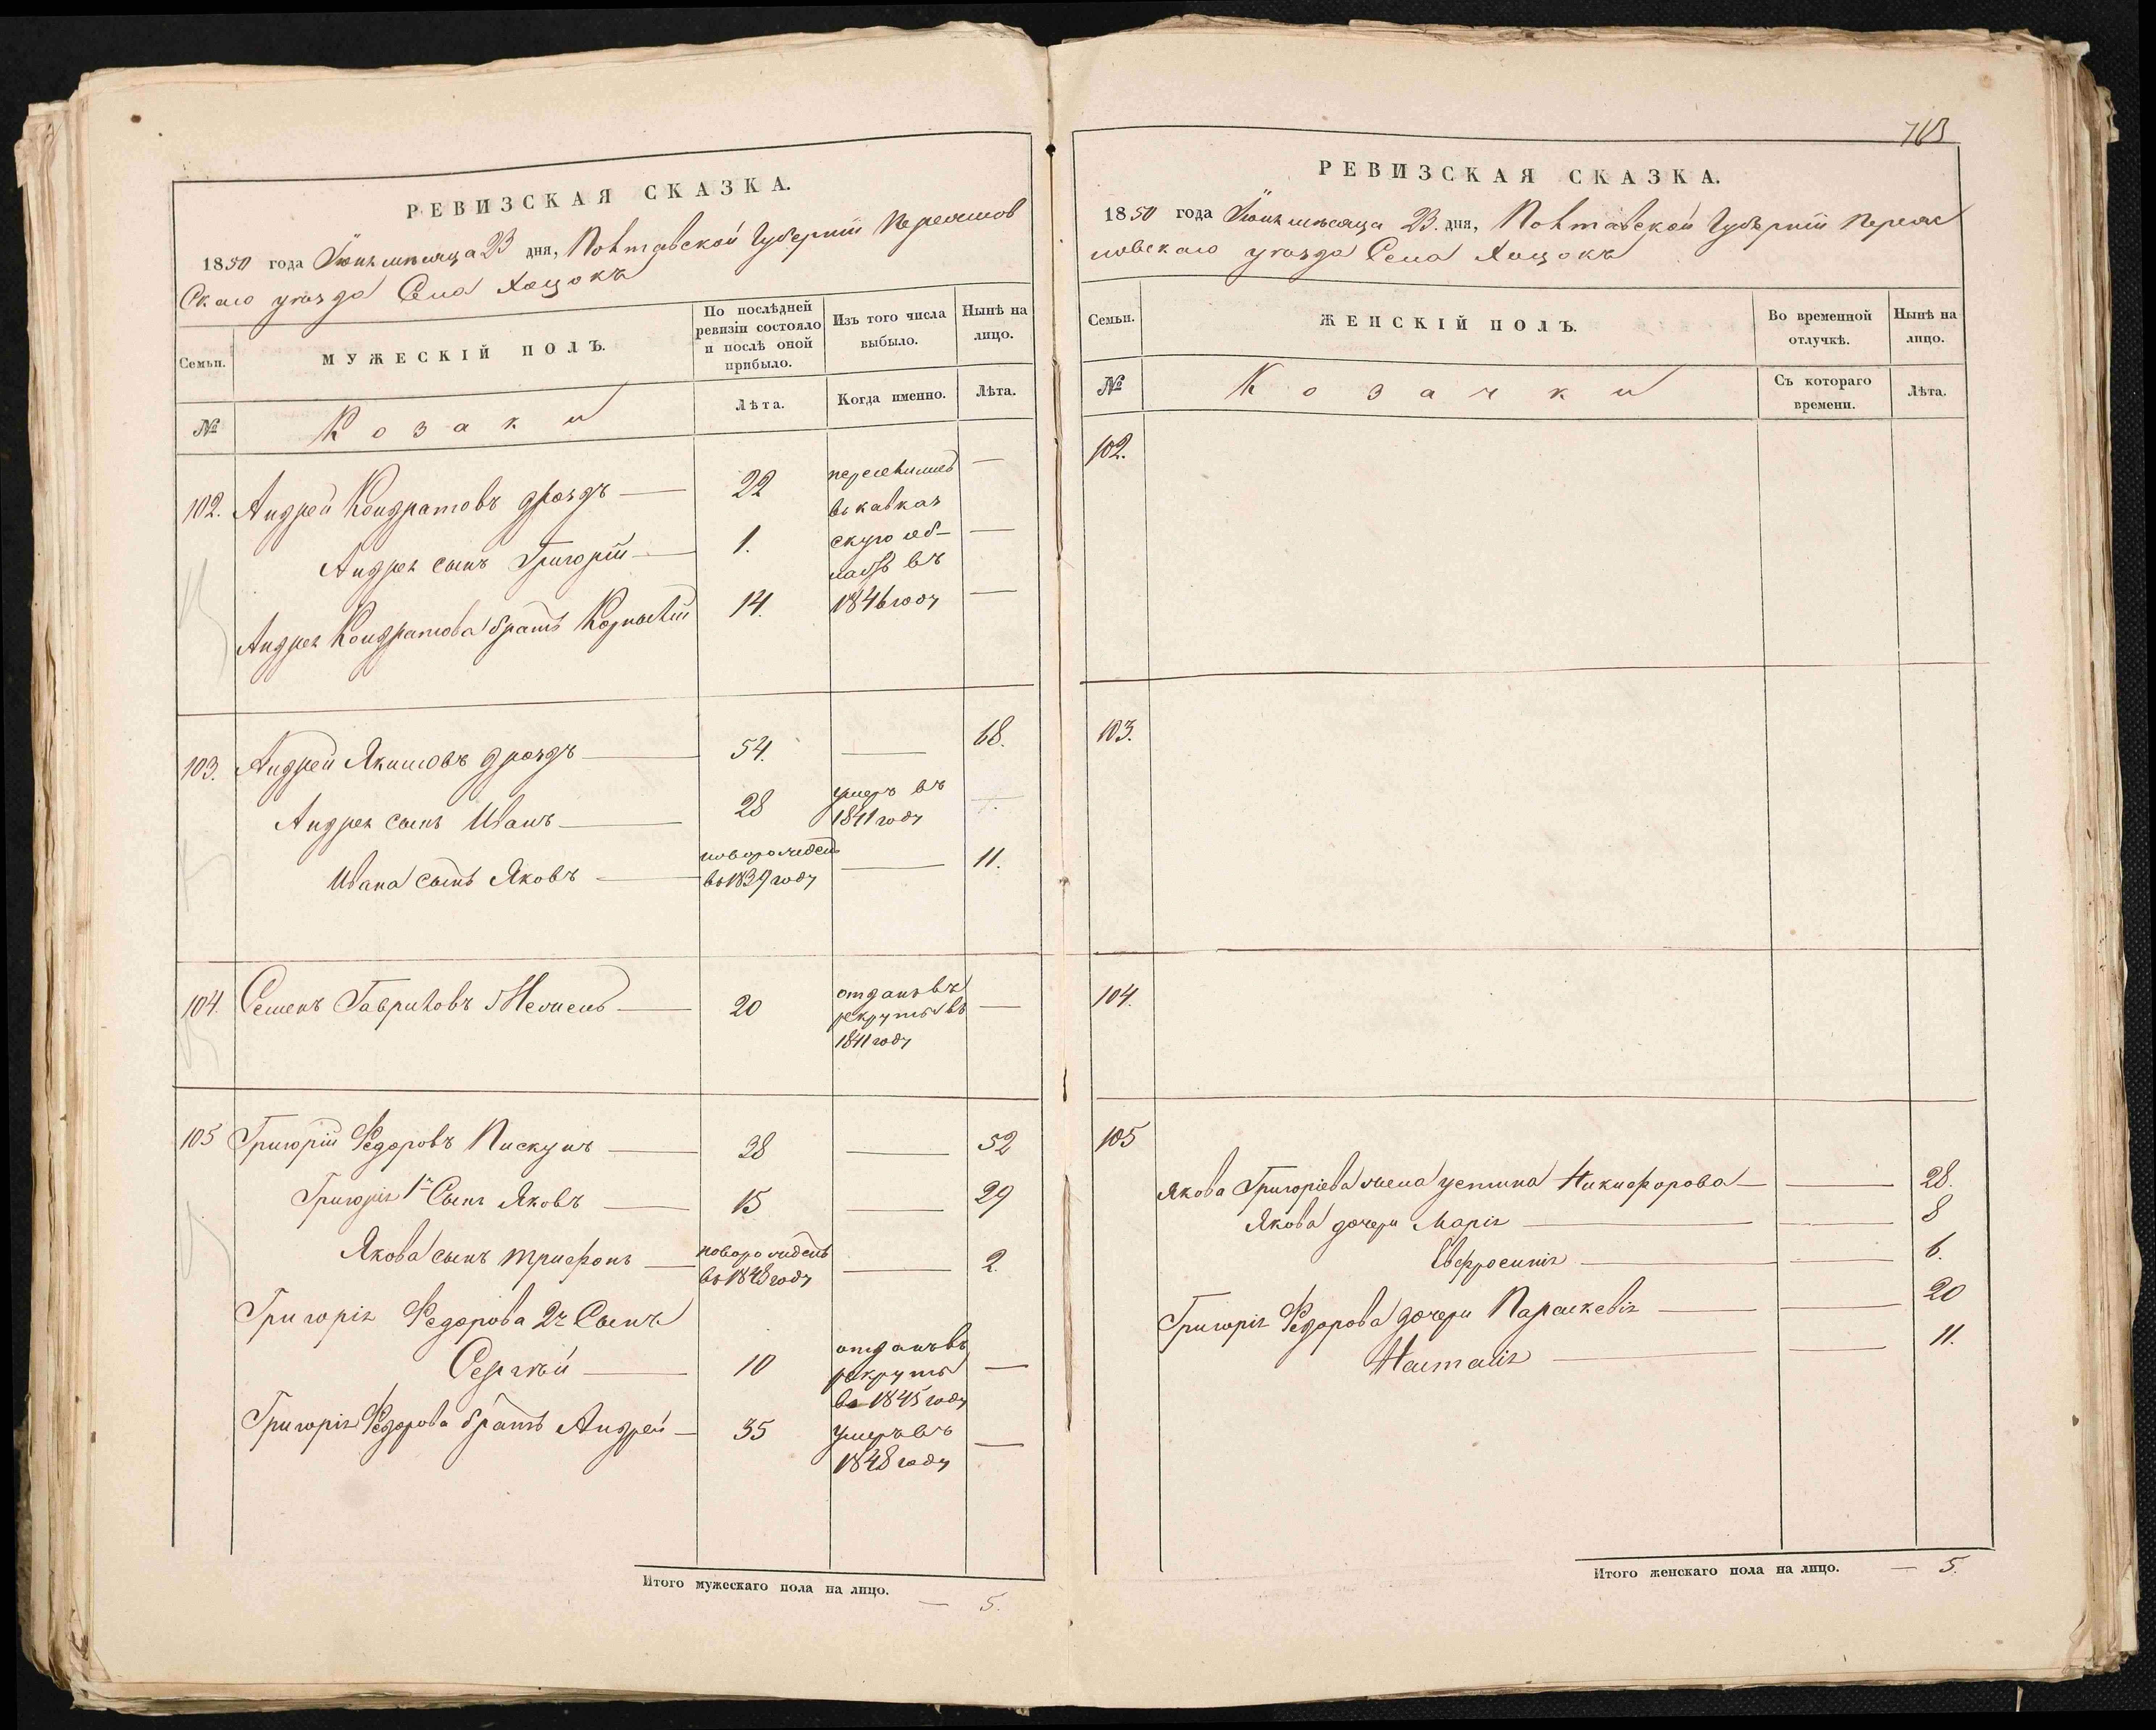 РЕВИЗСКАЯ СКАЗКА.
1850 года Іюнь мѣсяца 23 дня, Полтавской Губерніи Переяслов
скаго уѣзда Села Хоцокъ
Семьи.
МУЖЕСКІЙ ПОЛЪ.
По послѣдней
ревизіи состояло
и послѣ оной
прибыло.
Изъ того числа
выбыло.
Нынѣ на
лицо.
№
Козаки
Лѣта.
Когда именно.
Лѣта.
102. Андрей Кондратовъ Дроздъ — 22 переселились —
въ кавказ
Андрея сынъ Григорій — 1. скую об- —
ласть въ
Андрея Кондратова братъ Корнилій 14. 1846 году —
103. Андрей Якимовъ Дроздъ — 54. — 68.
Андрея сынъ Иванъ — 28 умеръ въ —
1841 году
Ивана сынъ Яковъ — новорожденъ — 11.
въ 1839 году
104. Семенъ Гавриловъ — 20 отданъ въ —
рекруты въ
1841 году
105 Григорій Федоровъ Пискунъ — 38 — 52
Григорія 1й Сынъ Яковъ — 15 — 29
Якова сынъ Трифонъ — новорожденъ — 2.
въ 1848 году
Григорія Федорова 2й Сынъ
Сергѣй — 10 отданъ въ —
рекруты
въ 1845 году
Григорія Федорова братъ Андрей — 35 умеръ въ —
1848 году
Итого мужескаго пола на лицо. — 5.
РЕВИЗСКАЯ СКАЗКА.
1850 года Іюнь мѣсяца 23. дня, Полтавской Губерніи Переяс
ловскаго уѣзда Села Хоцокъ
Семьи.
ЖЕНСКІЙ ПОЛЪ.
Во временной
отлучкѣ.
Нынѣ на
лицо.
№
Козачки
Съ котораго
времени.
Лѣта.
102.
103.
104.
105
Якова Григоріева жена Устина Никифорова — — 28.
Якова дочери Марія — — 8
Евфросинія — — 6.
Григорія Федорова дочери Параскевія — — 20
Наталія — — 11.
Итого женскаго пола на лицо. — 5.